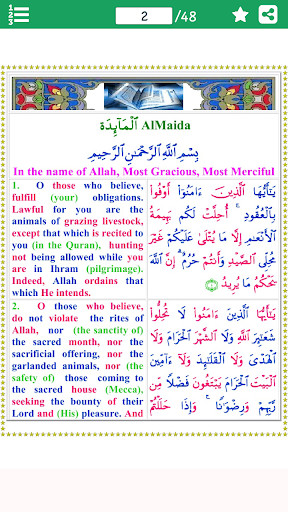 1
2
3
2 /48
ٱلْمَآئِدَة AlMaida
بِسْمِ ٱللَّهِ ٱلرَّحْمَـٰنِ ٱلرَّحِيمِ
In the name of Allah, Most Gracious, Most Merciful
1. O those who believe,
fulfill (your) obligations.
Lawful for you are the
animals of grazing livestock,
except that which is recited to
you (in the Quran), hunting
not being allowed while you
are in Ihram (pilgrimage).
Indeed, Allah ordains that
which He intends.
يَـٰٓأَيُّهَا ٱلَّذِينَ ءَامَنُوٓا۟ أَوْفُوا۟
بِٱلْعُقُودِ ۚ أُحِلَّتْ لَكُم بَهِيمَةُ
ٱلْأَنْعَـٰمِ إِلَّا مَا يُتْلَىٰ عَلَيْكُمْ غَيْرَ
مُحِلِّى ٱلصَّيْدِ وَأَنتُمْ حُرُمٌ ۗ إِنَّ ٱللَّهَ
يَحْكُمُ مَا يُرِيدُ ١
2. O those who believe,
do not violate the rites of
Allah, nor (the sanctity of)
the sacred month, nor the
sacrificial offering, nor the
garlanded animals, nor (the
safety of) those coming to
the sacred house (Mecca),
seeking the bounty of their
Lord and (His) pleasure. And
يَـٰٓأَيُّهَا ٱلَّذِينَ ءَامَنُوا۟ لَا تُحِلُّوا۟
شَعَـٰٓئِرَ ٱللَّهِ وَلَا ٱلشَّهْرَ ٱلْحَرَامَ وَلَا
ٱلْهَدْىَ وَلَا ٱلْقَلَـٰٓئِدَ وَلَآ ءَآمِّينَ
ٱلْبَيْتَ ٱلْحَرَامَ يَبْتَغُونَ فَضْلًا مِّن
رَّبِّهِمْ وَرِضْوَٰنًا ۚ وَإِذَا حَلَلْتُمْ